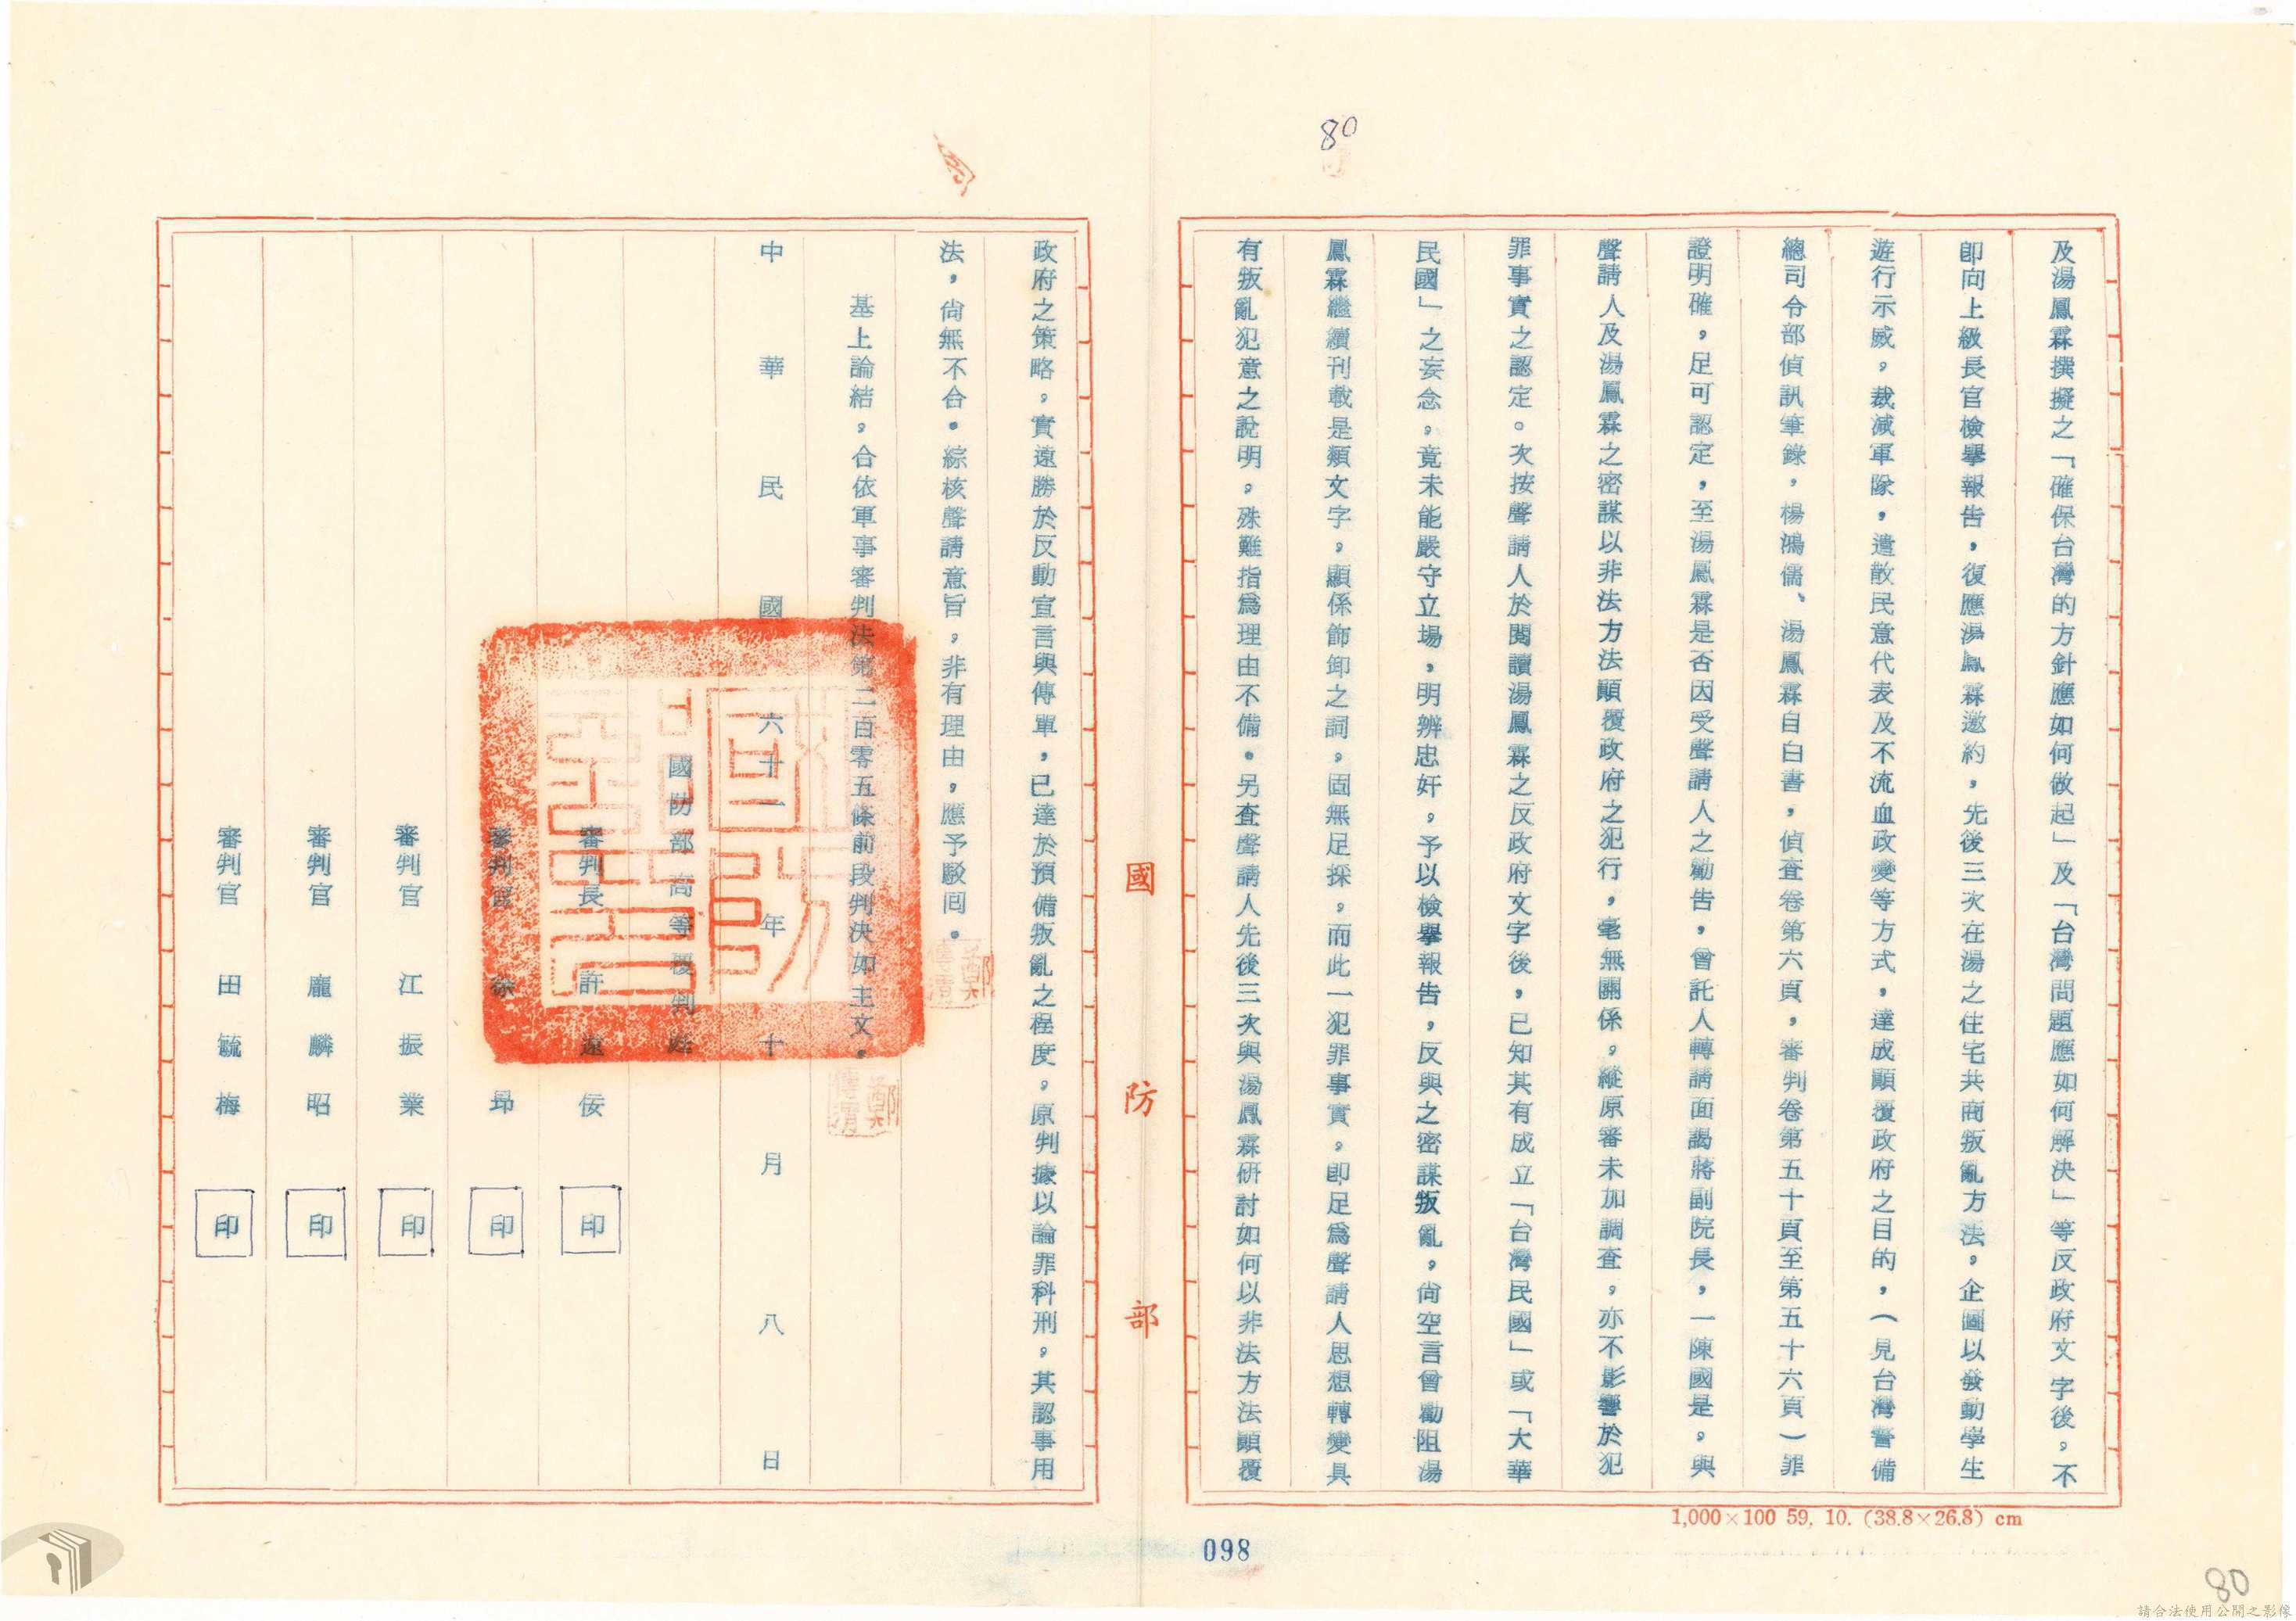 80
及湯鳳霖撰擬之「確保台灣的方針應如何做起」及「台灣問題應如何解決」等反政府文字後，不
卽向上級長官檢舉報告，復應湯鳳霖邀約，先後三次在湯之住宅共商叛亂方法，企圖以發動學生
遊行示威。裁減軍隊，遣散民意代表及不流血政變等方式，達成顚覆政府之目的，（見台灣警備
總司令部偵訊筆錄，楊鴻儒、湯鳳霖自白書，偵查卷第六頁，審判卷第五十頁至第五十六頁）罪
證明確，足可認定，至湯鳳霖是否因受聲請人之勸告，曾託人轉請面謁蔣副院長，一陳國是，與
聲請人及湯鳳霖之密謀以非法方法顚覆政府之犯行，毫無關係，縱原審未加調查，亦不影響於犯
罪事實之認定。次按聲請人於閱讀湯鳳霖之反政府文字後，已知其有成立「台灣民國」或「大華
民國」之妄念，竟未能嚴守立場，明辨忠奸，予以檢舉報告，反與之密謀叛亂，尙空言曾勸阻湯
鳳霖繼續刊載是類文字，顯係飾卸之詞，固無足採，而此一犯罪事實，卽足爲聲請人思想轉變具
有叛亂犯意之說明，殊難指爲理由不備。另查聲請人先後三次與湯鳳霖研討如何以非法方法顚覆
國防部
政府之策略，實遠勝於反動宣言與傳單，已達於預備叛亂之程度，原判據以論罪科刑，其認事用
法，尙無不合。綜核聲請意旨，非有理由，應予駁回。
基上論結，合依軍事審判法第二百零五條前段判決如主文。
中華民國六十一年十月八日
國防部高等覆判庭
審判長 許遠 佞 印
審判官 徐 昻 印
審判官 江振業 印
審判官 龐麟昭 印
審判官 田毓梅 印
1,000×100 59. 10. (38.8×26.8) cm
098
80
請合法使用公開之影像